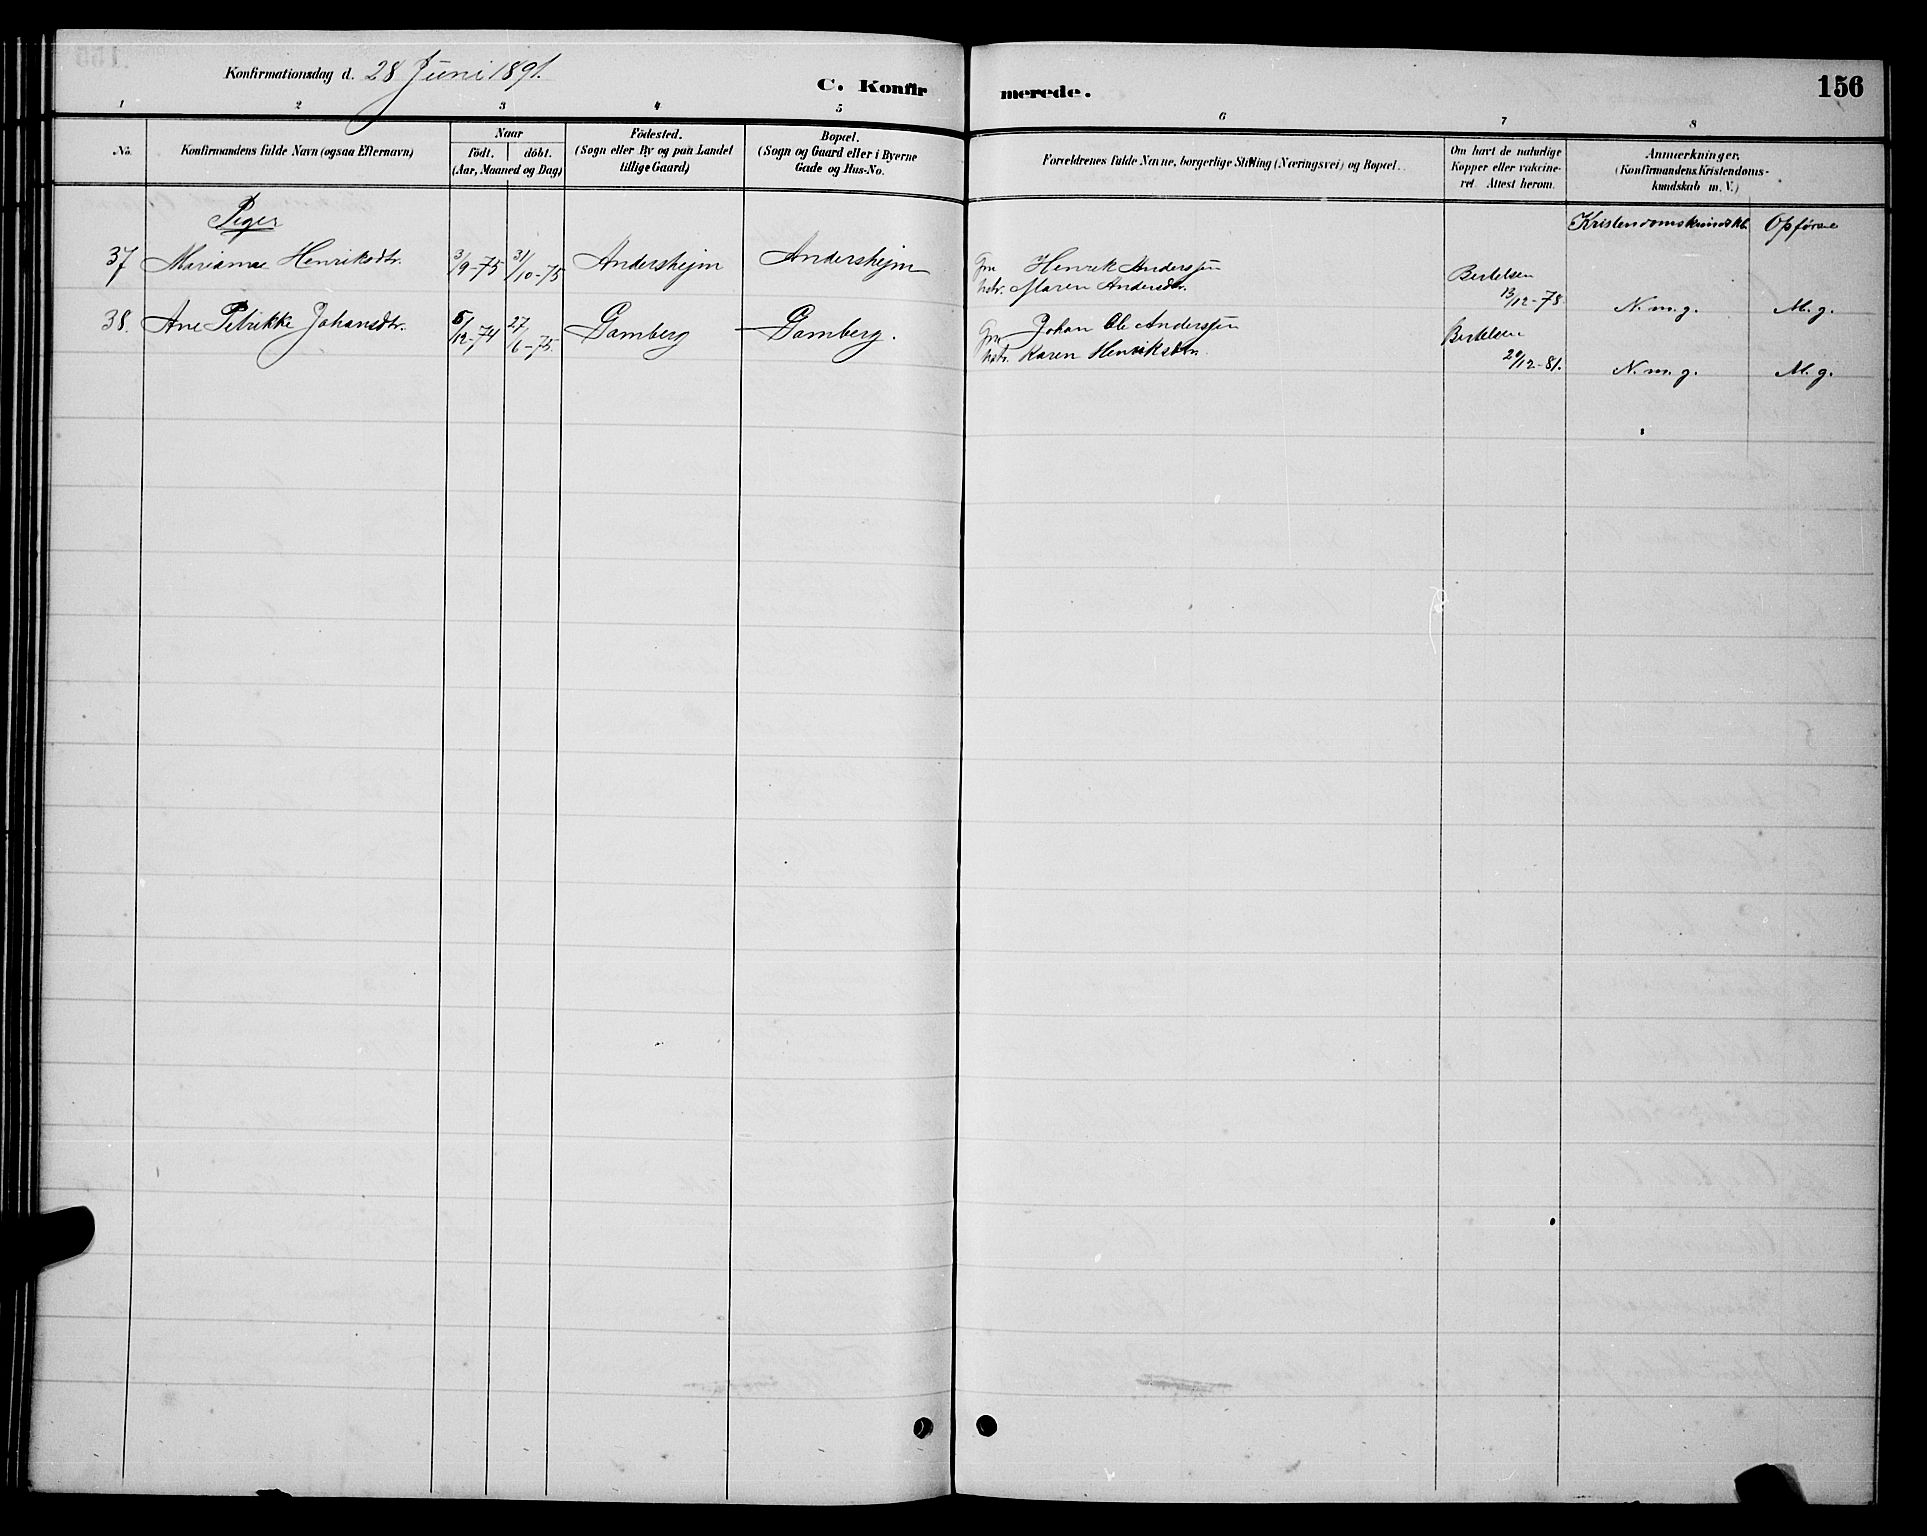 Konfirmationsdag d. 28 Juni 1891.
C. Konfirmerede.
156
1 2 3 4 5 6 7 8
No.
Konfirmandens fulde Navn (ogsaa Efternavn)
Naar
födt. döbt.
(Aar, Maaned og Dag)
Födested.
(Sogn eller By og paa Landet
tillige Gaard)
Bopæl.
(Sogn og Gaard eller i Byerne
Gade og Hus-No.
Forældrenes fulde Navne, borgerlige Stilling (Næringsvei) og Bopæl.
Om havt de naturlige
Kopper eller vakcine-
ret. Attest herom.
Anmærkninger.
(Konfirmandens Kristendoms-
kundskab m. V.)
Piger
Kristendomskundskb. Opførsel
37 Marianne Henriksdtr. 3/9-75 31/10-75 Andershejm Andershejm Gm Henrik Anderssen Bertelsen
Hstr. Maren Andersdtr. 13/12-78 N.m.g. M.g.
38. Ane Petrikke Johansdtr. 5/12-74 27/6-75. Gamberg Gamberg. Gm Johan Ole Anderssen Bertelsen
Hstr. Karen Henriksdtr. 20/12-81. N.m.g. M.g.